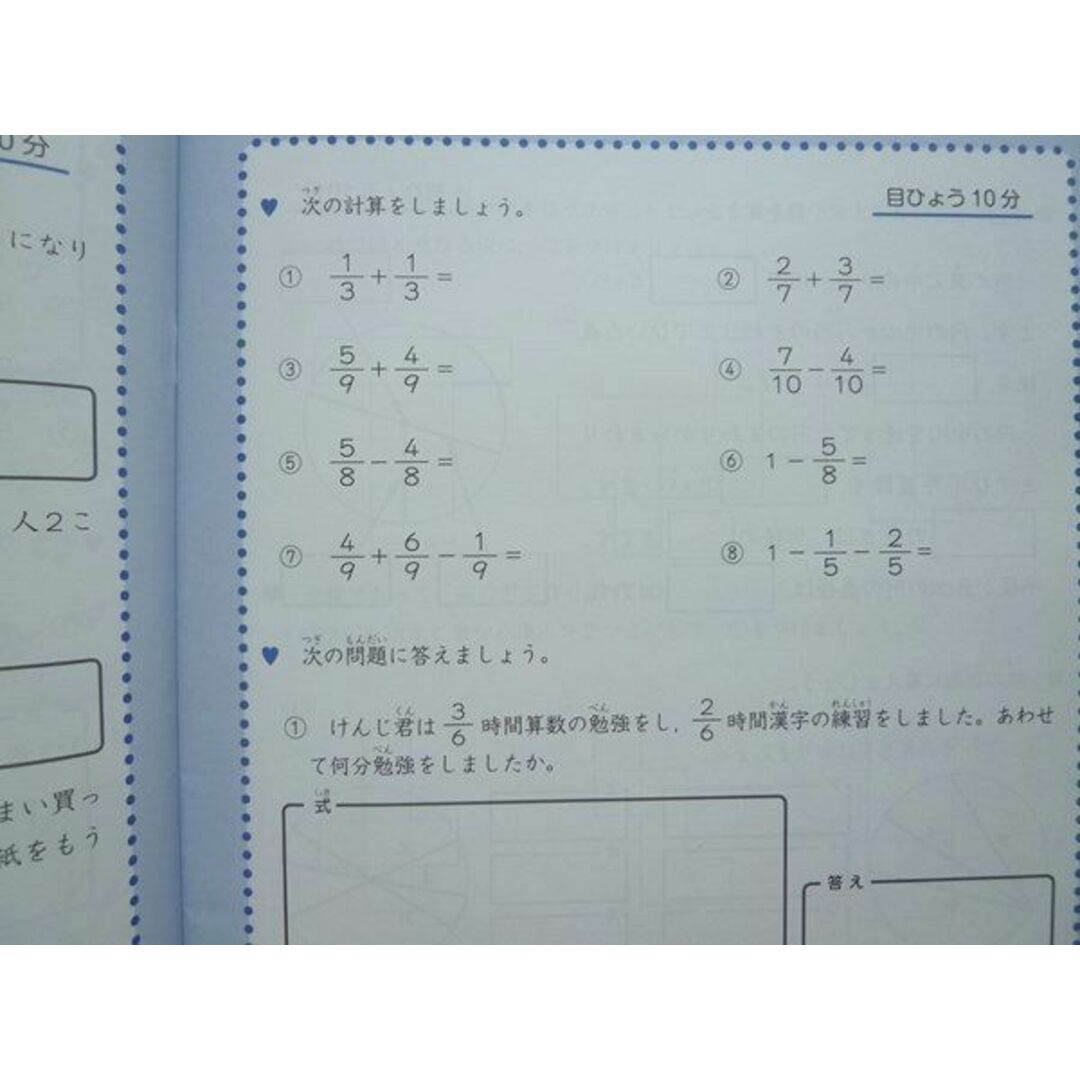 0分
になり
人2こ
まい買っ
紙をもう
目ひょう10分
♥ 次の計算をしましょう。
① 1/3 + 1/3 =
② 2/7 + 3/7 =
③ 5/9 + 4/9 =
④ 7/10 − 4/10 =
⑤ 5/8 − 4/8 =
⑥ 1 − 5/8 =
⑦ 4/9 + 6/9 − 1/9 =
⑧ 1 − 1/5 − 2/5 =
♥ 次の問題に答えましょう。
① けんじ君は 3/6 時間算数の勉強をし，2/6 時間漢字の練習をしました。あわせ
て何分勉強をしましたか。
式
答え